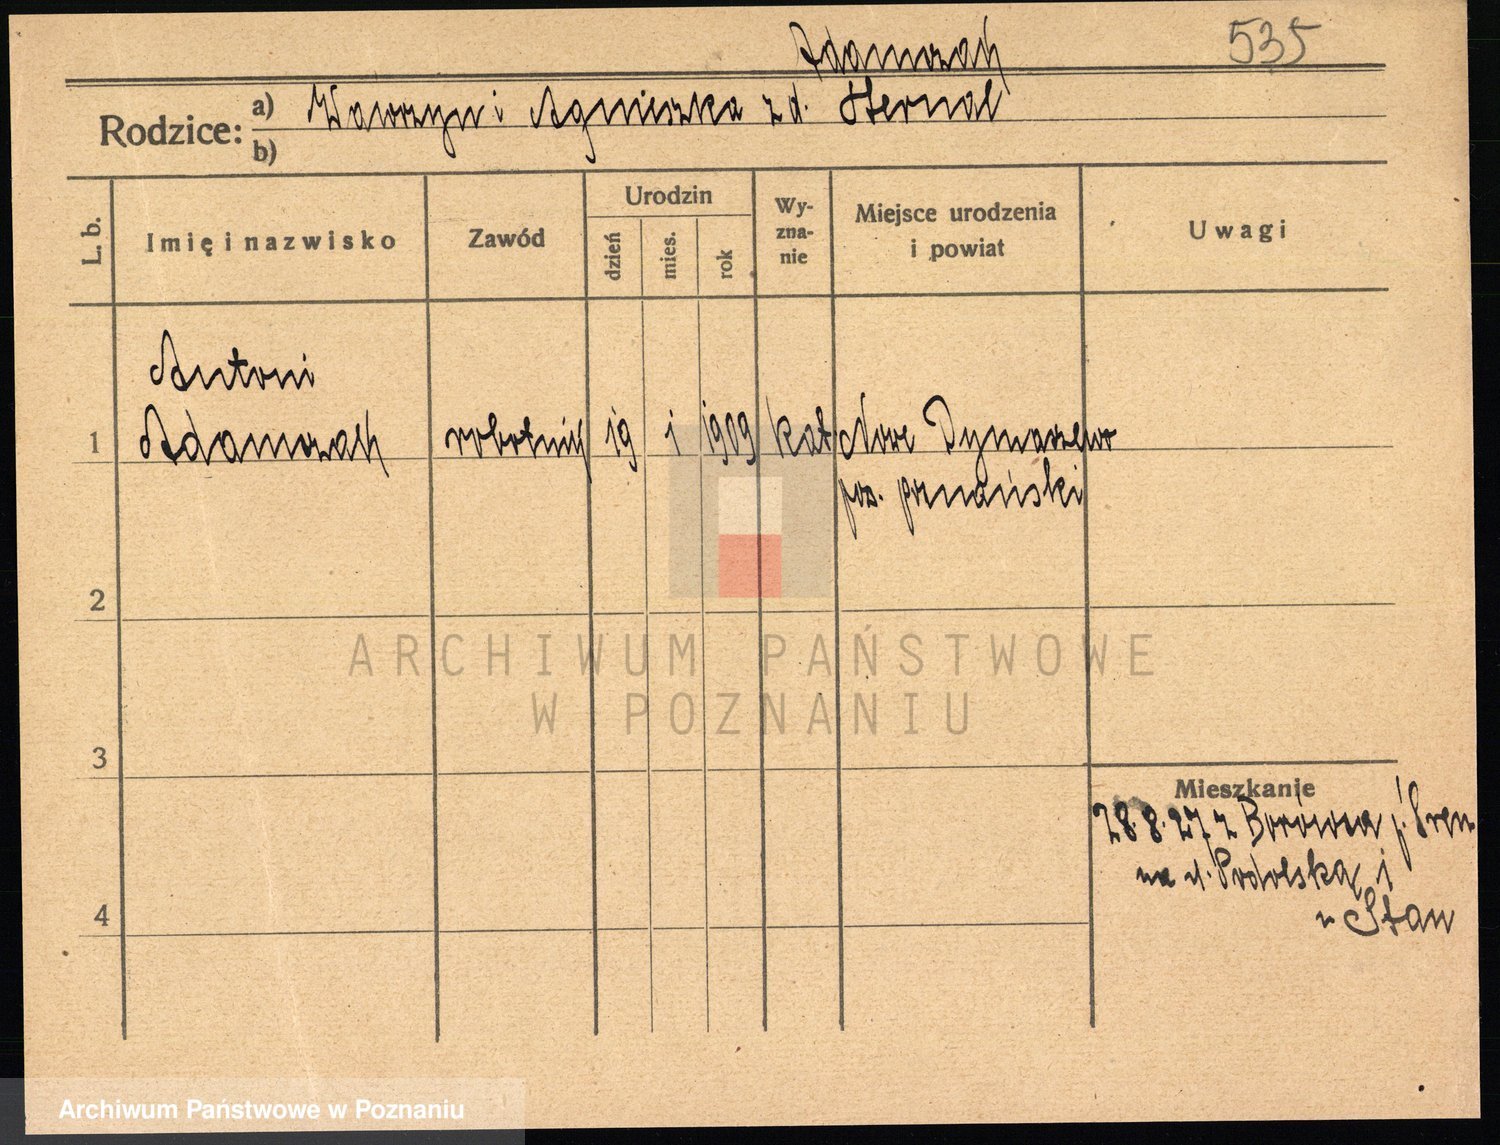 535
Adamczak
Rodzice: a) Wawrzyn i Agnieszka zd. Hernal
b)
L. b. Imię i nazwisko Zawód Urodzin dzień mies. rok Wy-zna-nie Miejsce urodzenia i powiat Uwagi
Antoni
1 Adamczak robotnik 19 1 1909 kat Nowe Dymaczewo
poznański
2
ARCHIWUM PAŃSTWOWE
W POZNANIU
3
Mieszkanie
28.8.27 z p. Śrem
na ul. Podolską 1
4
u Staw
Archiwum Państwowe w Poznaniu